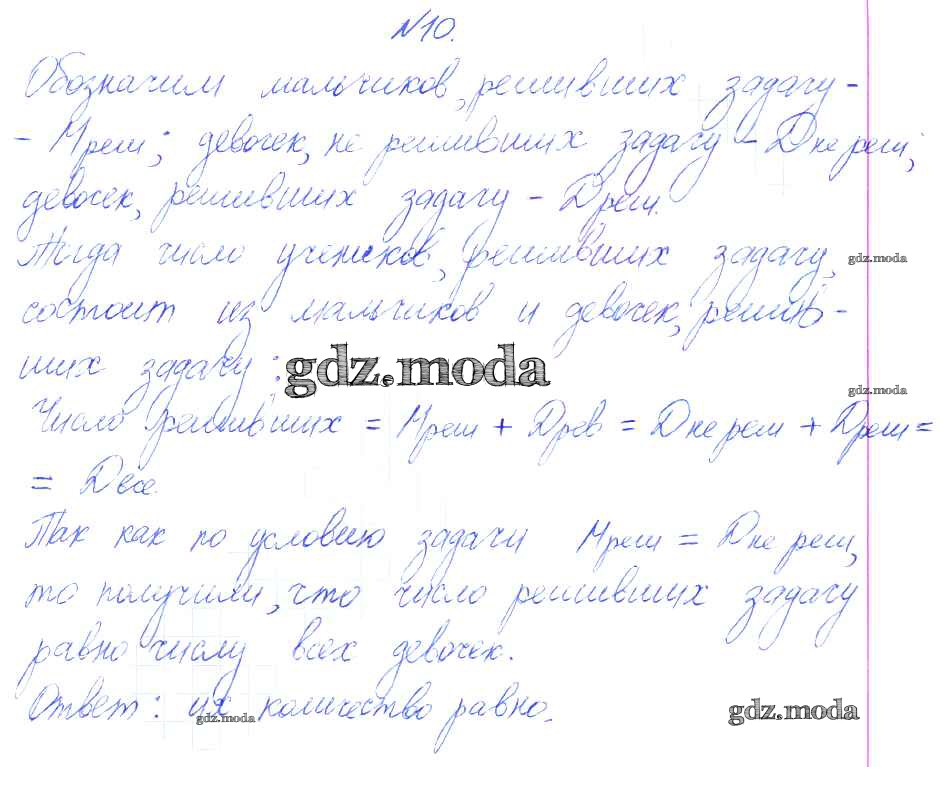 №10.
Обозначим мальчиков, решивших задачу -
- Mреш; девочек, не решивших задачу - Dне реш;
девочек, решивших задачу - Dреш.
Тогда число учеников, решивших задачу, gdz.moda
состоит из мальчиков и девочек, решив-
ших задачу: gdz.moda gdz.moda
Число решивших = Mреш + Dрев = Dне реш + Dреш =
= Dвсе.
Так как по условию задачи Mреш = Dне реш,
то получили, что число решивших задачу
равно числу всех девочек.
Ответ: их количество равно.
gdz.moda gdz.moda